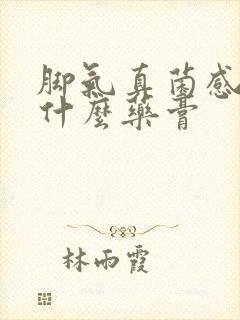 脚氣真菌感
什麼藥膏
林雨霞